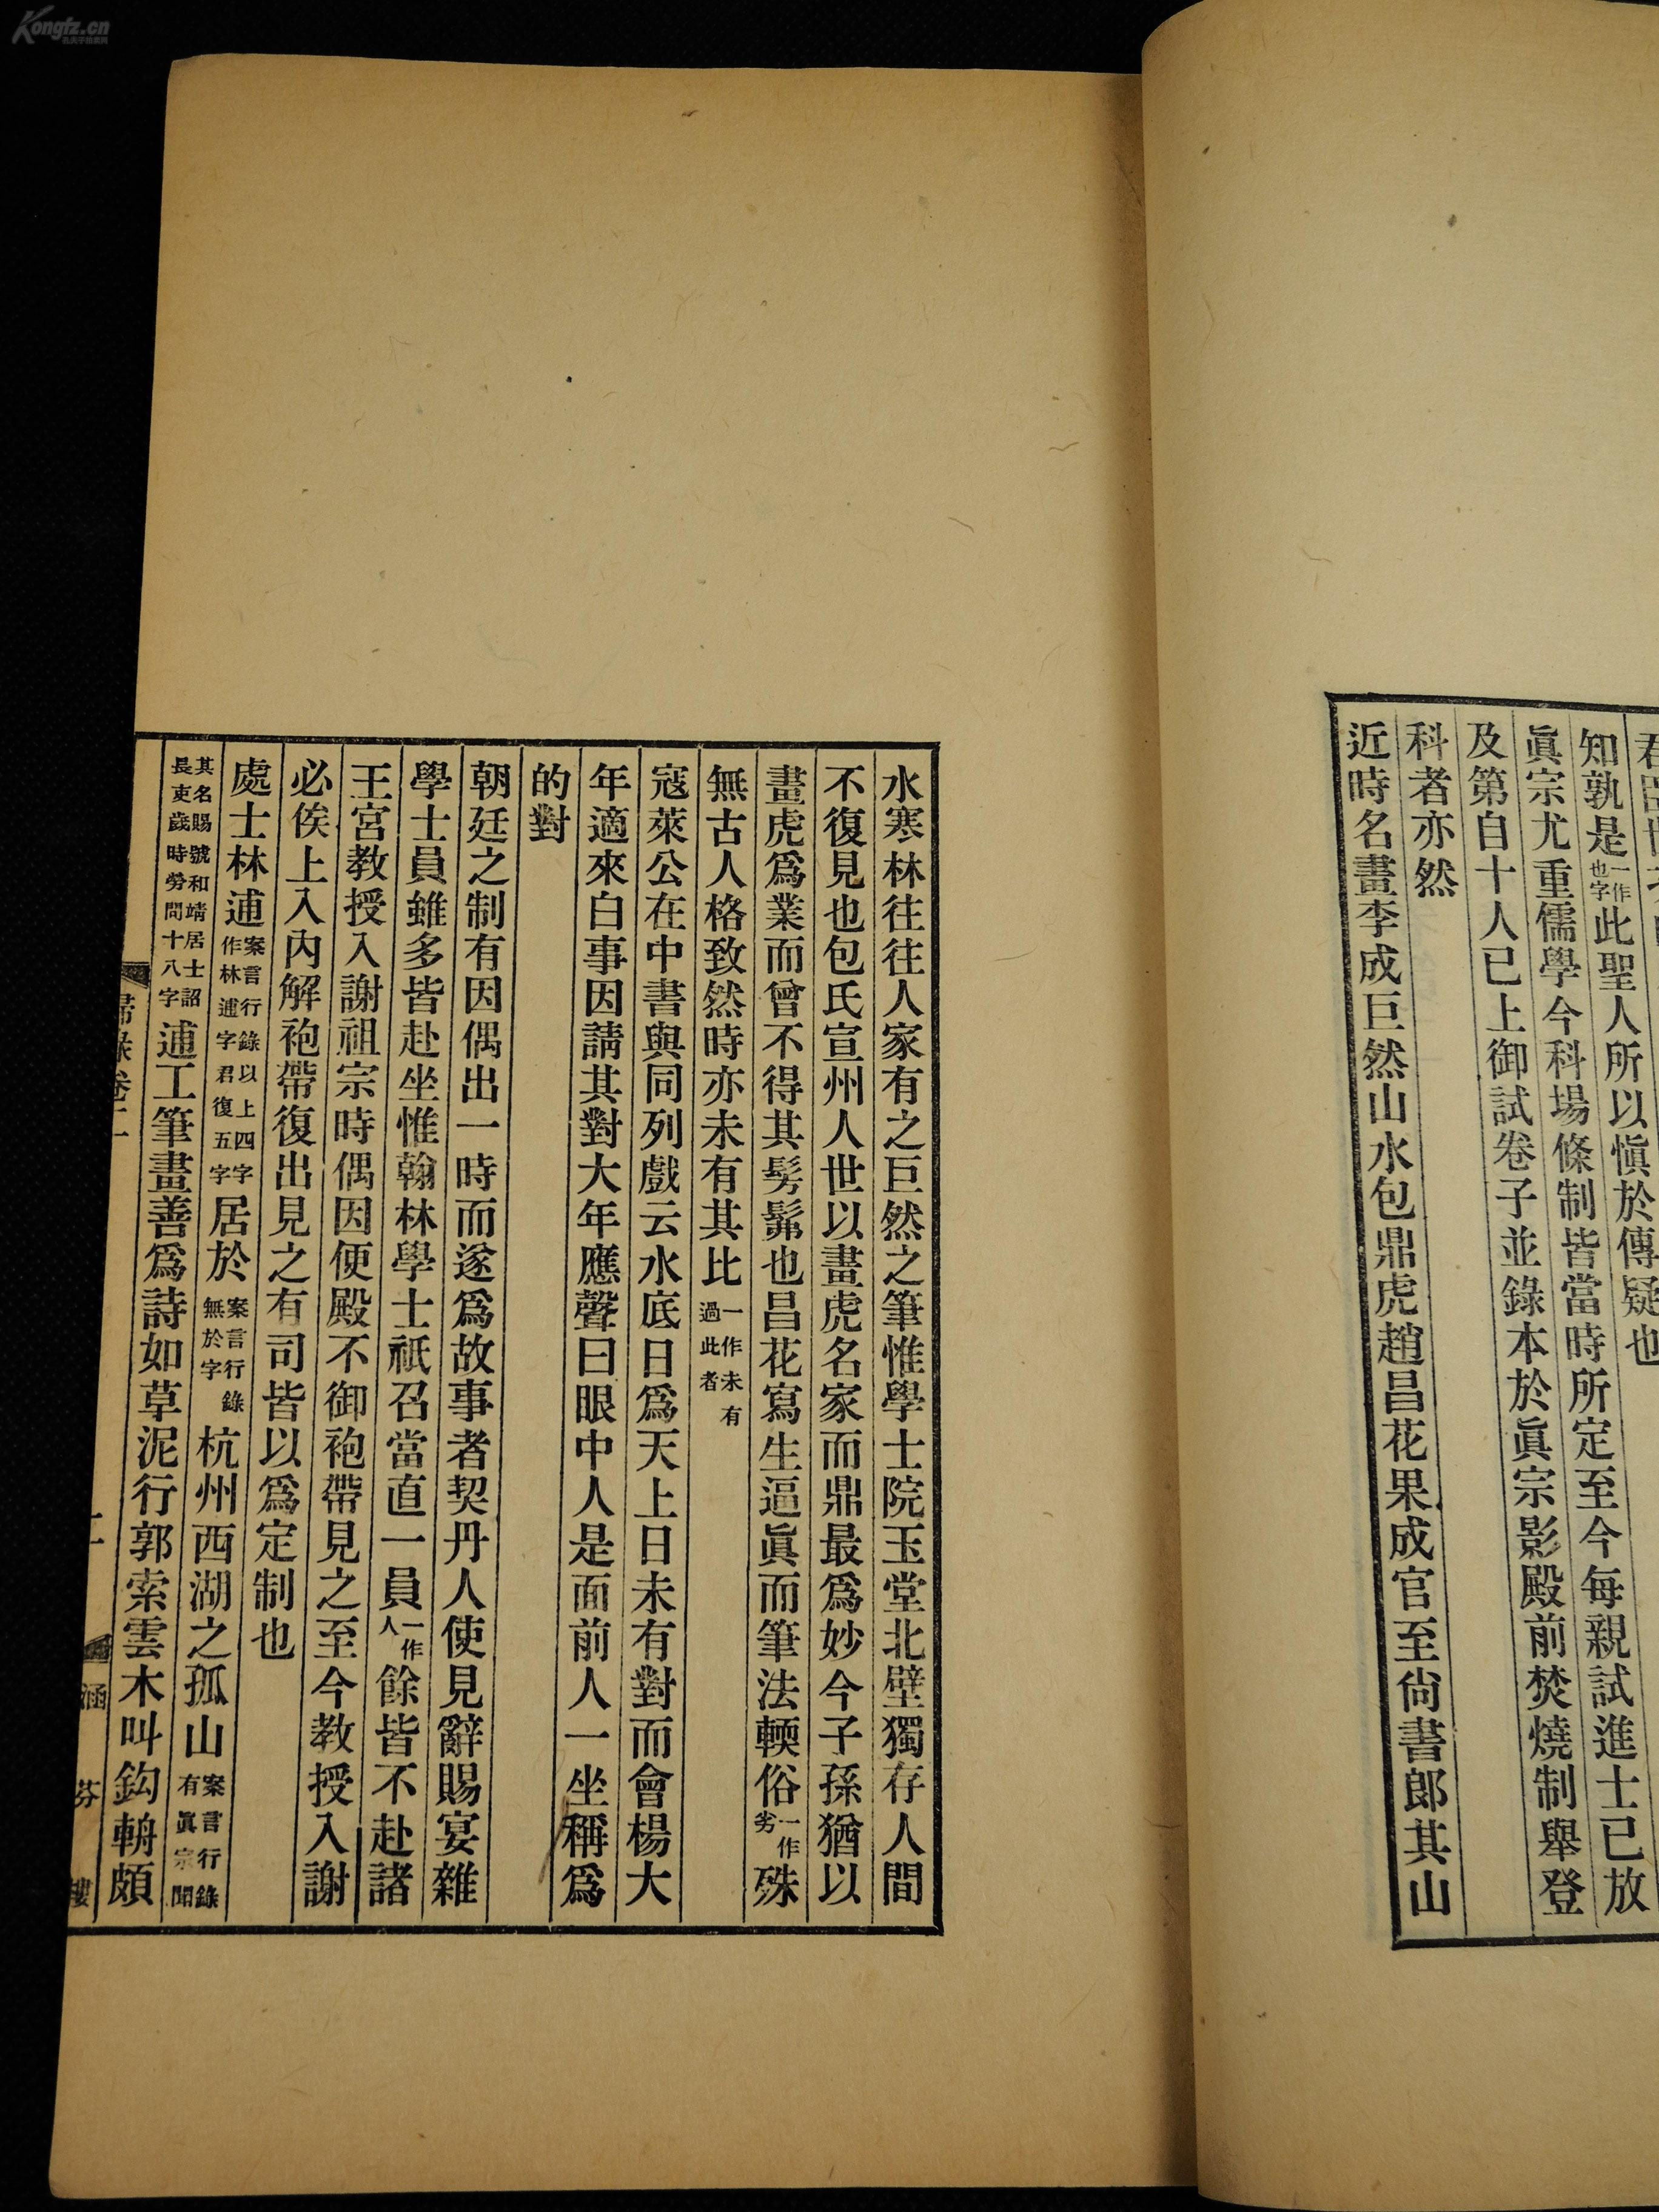 知孰是一作也字此聖人所以愼於傳疑也
眞宗尤重儒學今科場條制皆當時所定至今每親試進士已放
及第自十人已上御試卷子並錄本於眞宗影殿前焚燒制舉登
科者亦然
近時名畫李成巨然山水包鼎虎趙昌花果成官至尙書郎其山
水寒林往往人家有之巨然之筆惟學士院玉堂北壁獨存人間
不復見也包氏宣州人世以畫虎名家而鼎最爲妙今子孫猶以
畫虎爲業而曾不得其髣髴也昌花寫生逼眞而筆法輭俗一作劣殊
無古人格致然時亦未有其比一作未有過此者
寇萊公在中書與同列戲云水底日爲天上日未有對而會楊大
年適來白事因請其對大年應聲曰眼中人是面前人一坐稱爲
的對
朝廷之制有因偶出一時而遂爲故事者契丹人使見辭賜宴雜
學士員雖多皆赴坐惟翰林學士祇召當直一員一作人餘皆不赴諸
王宮教授入謝祖宗時偶因便殿不御袍帶見之至今教授入謝
必俟上入內解袍帶復出見之有司皆以爲定制也
處士林逋案言行錄以上四字作林逋字君復五字居於案言行錄無於字杭州西湖之孤山案言行錄有眞宗聞
其名賜號和靖居士詔長吏歲時勞問十八字逋工筆畫善爲詩如草泥行郭索雲木叫鈎輈頗
歸 錄卷二
二
涵芬樓
Kongfz.cn